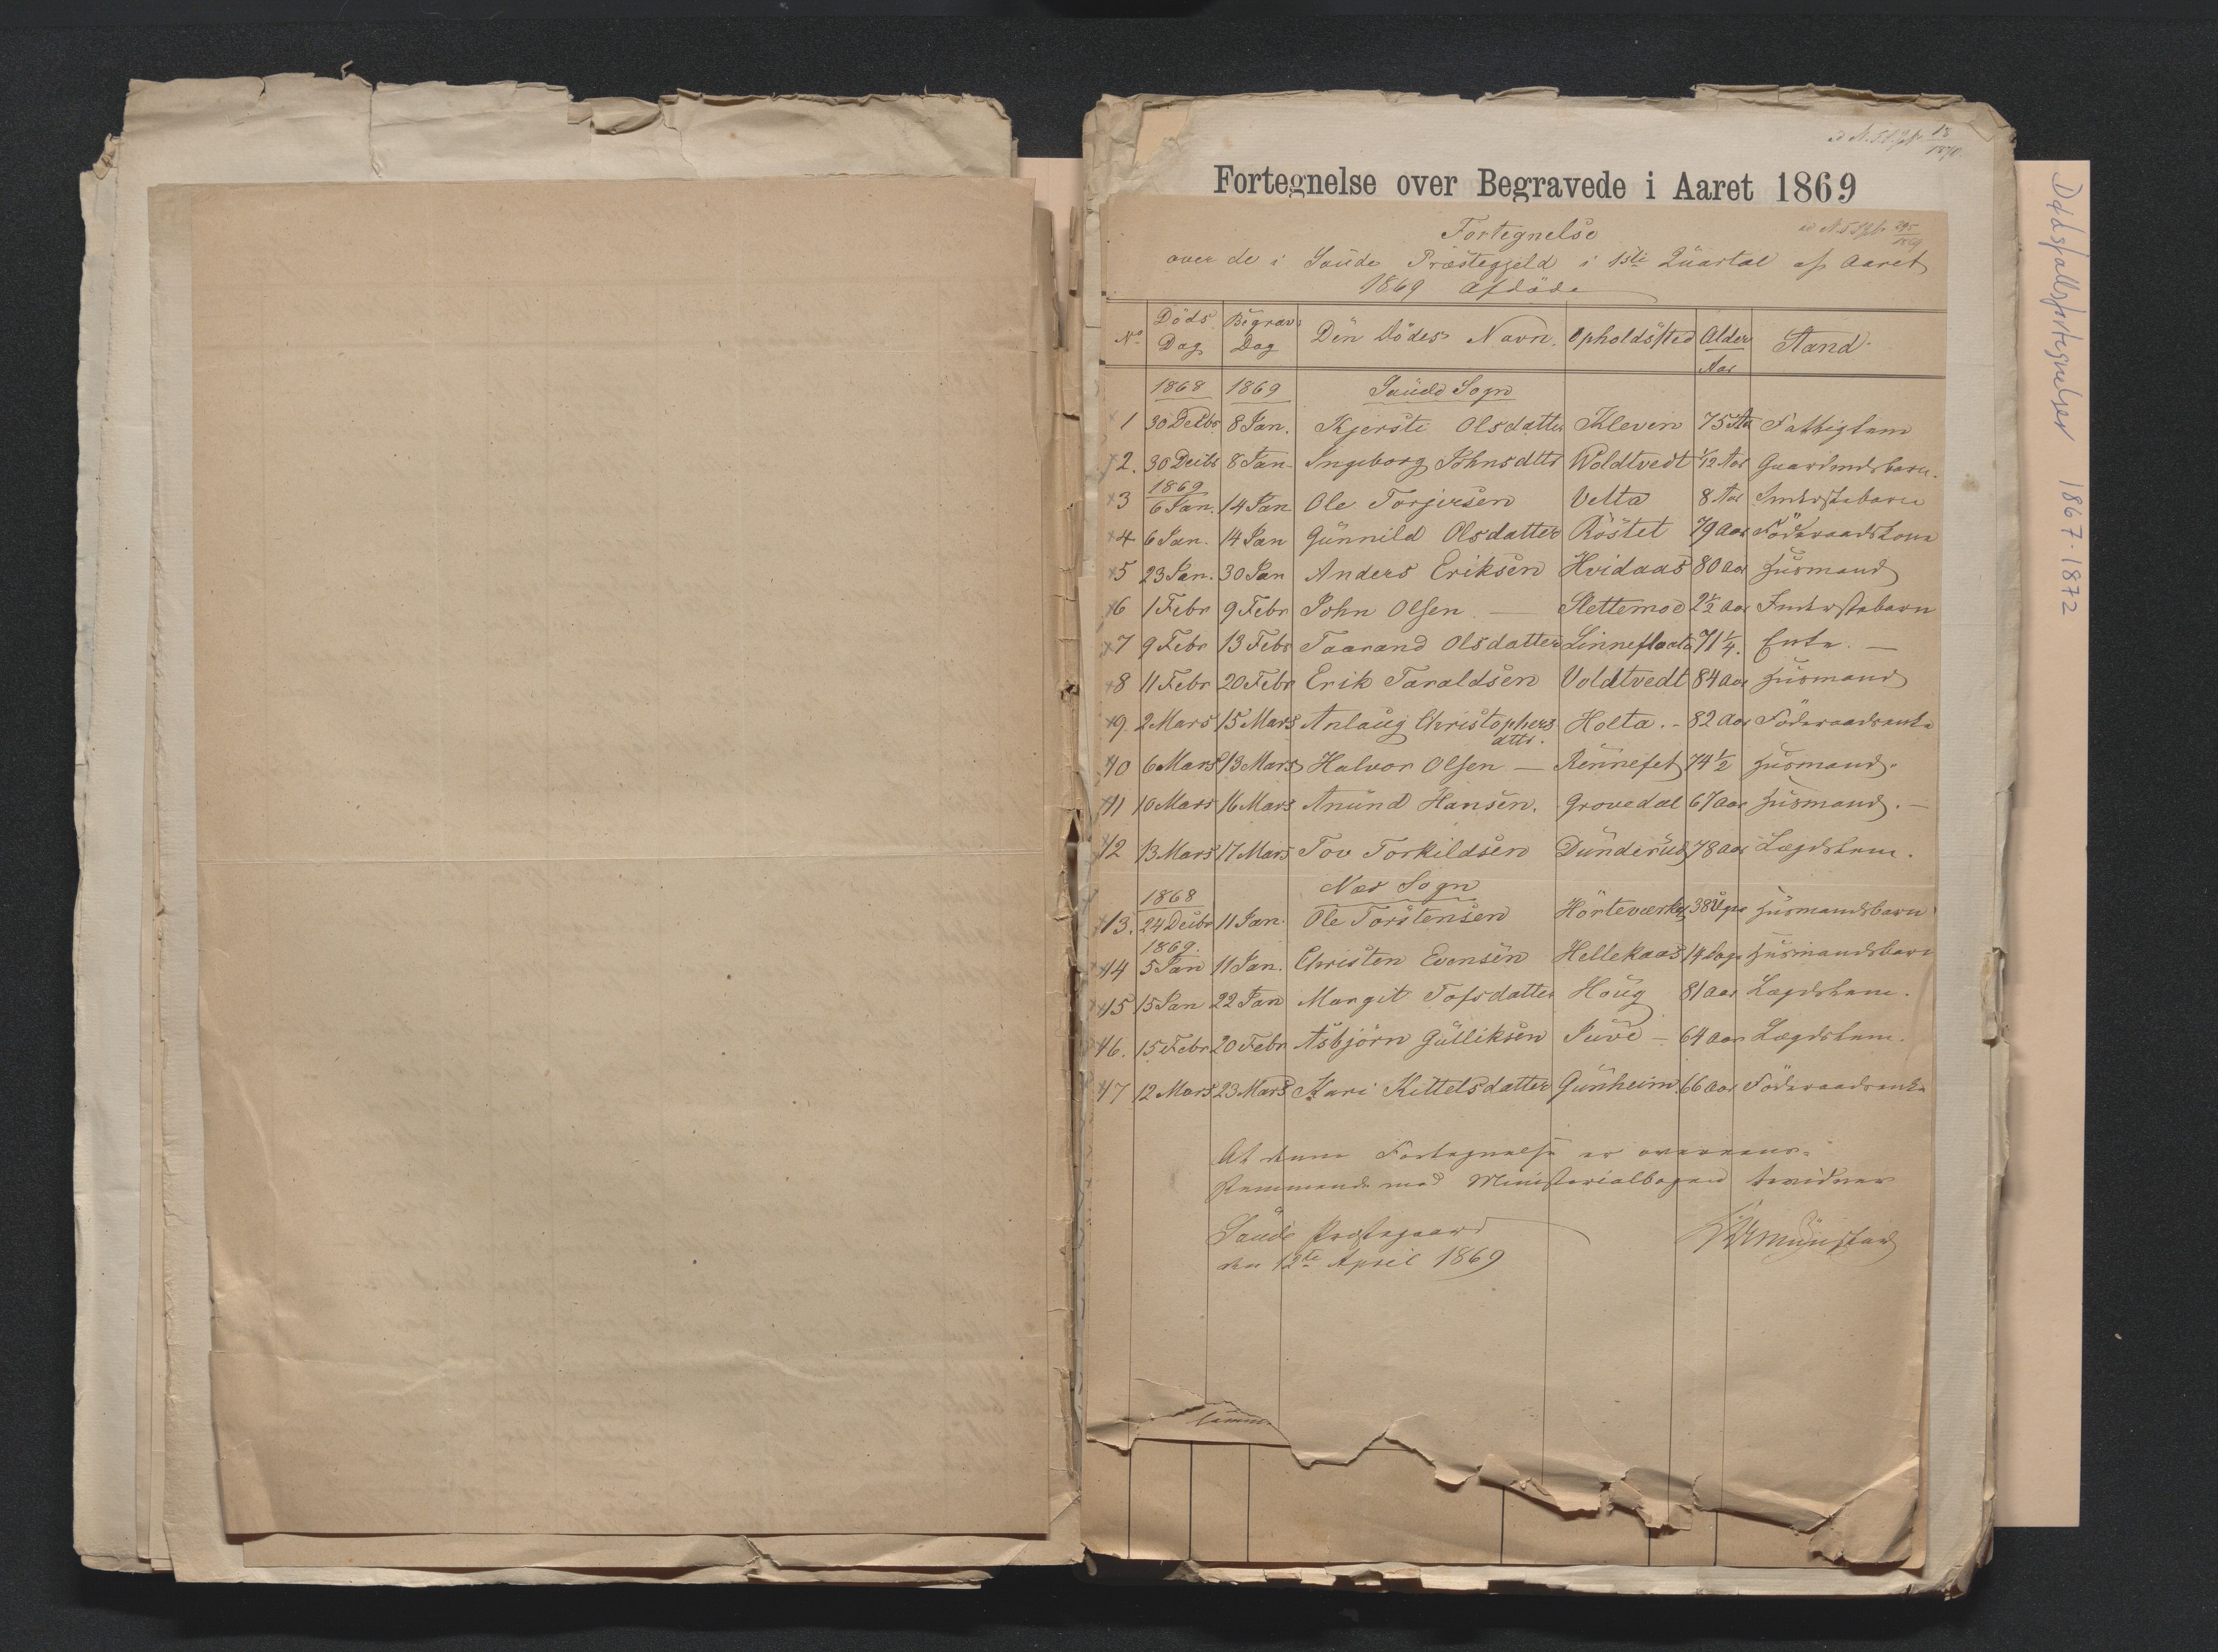 Fortegnelse over Begravede i Aaret 1869
Fortegnelse
over de i Saude Præstegjeld i 1ste Quartal af Aaret
1869 Afdøde
No Döds Dag Begrav: Dag Den Dödes Navn. Opholdssted Alder Aar Stand
1868 1869 Saude Sogn
1 30 Decbr 8 Jan. Kjersti Olsdatter Kleven 75 Aar Fattiglem
2. 30 Decbr 8 Jan. Ingeborg Johnsdttr Woldtvedt 1/12 Aar Gaardmdsbarn.
1869
3 6 Jan. 14 Jan Ole Torjersen Velta 8 Aar Inderstebarn
4 6 Jan. 14 Jan Gunnild Olsdatter Röstet 79 Aar Föderaadskone
5 23 Jan. 30 Jan Anders Eriksen Hvidaas 80 Aar Husmand
6 1 Febr 9 Febr John Olsen — Slettemoe 2½ Aar Inderstebarn
7 9 Febr 13 Febr Taarand Olsdatter Linneflaata 71¼. Enke. —
8 11 Febr 20 Febr Erik Taraldsen Voldtvedt 84 Aar Husmand
9. 2 Mars 15 Mars Anlaug Christophers
dttr. Holta. - 82 Aar Föderaadsenke
10 6 Mars 13 Mars Halvor Olsen — Rennefet 74½ Husmand.
11 10 Mars 16 Mars Anund Hansen. Grovedal 67 Aar Husmand. —
12 13 Mars 17 Mars Tov Torkildsen Dunderud 78 Aar Lægdslem.
1868 Nes Sogn
13. 24 Decbr 11 Jan. Ole Torstensen Hörteværket 38 Uger Husmandsbarn
1869.
14 5 Jan 11 Jan. Christen Evensen Hellekaas 14 Dage Husmandsbarn
15 15 Jan 22 Jan Margit Tofsdatter Houg 81 Aar Lægdslem.
16. 15 Febr 20 Febr Asbjörn Gulliksen Juve — 64 Aar Lægdslem.
17 12 Mars 23 Mars Kari Kittelsdatter Gunheim 66 Aar Föderaadsenke
At denne Fortegnelse er overeens-
stemmende med Ministerialbogen bevidner
Saude Præstegaard
den 12te April 1869
Münster
Dødsfallsfortegnelser 1867-1872